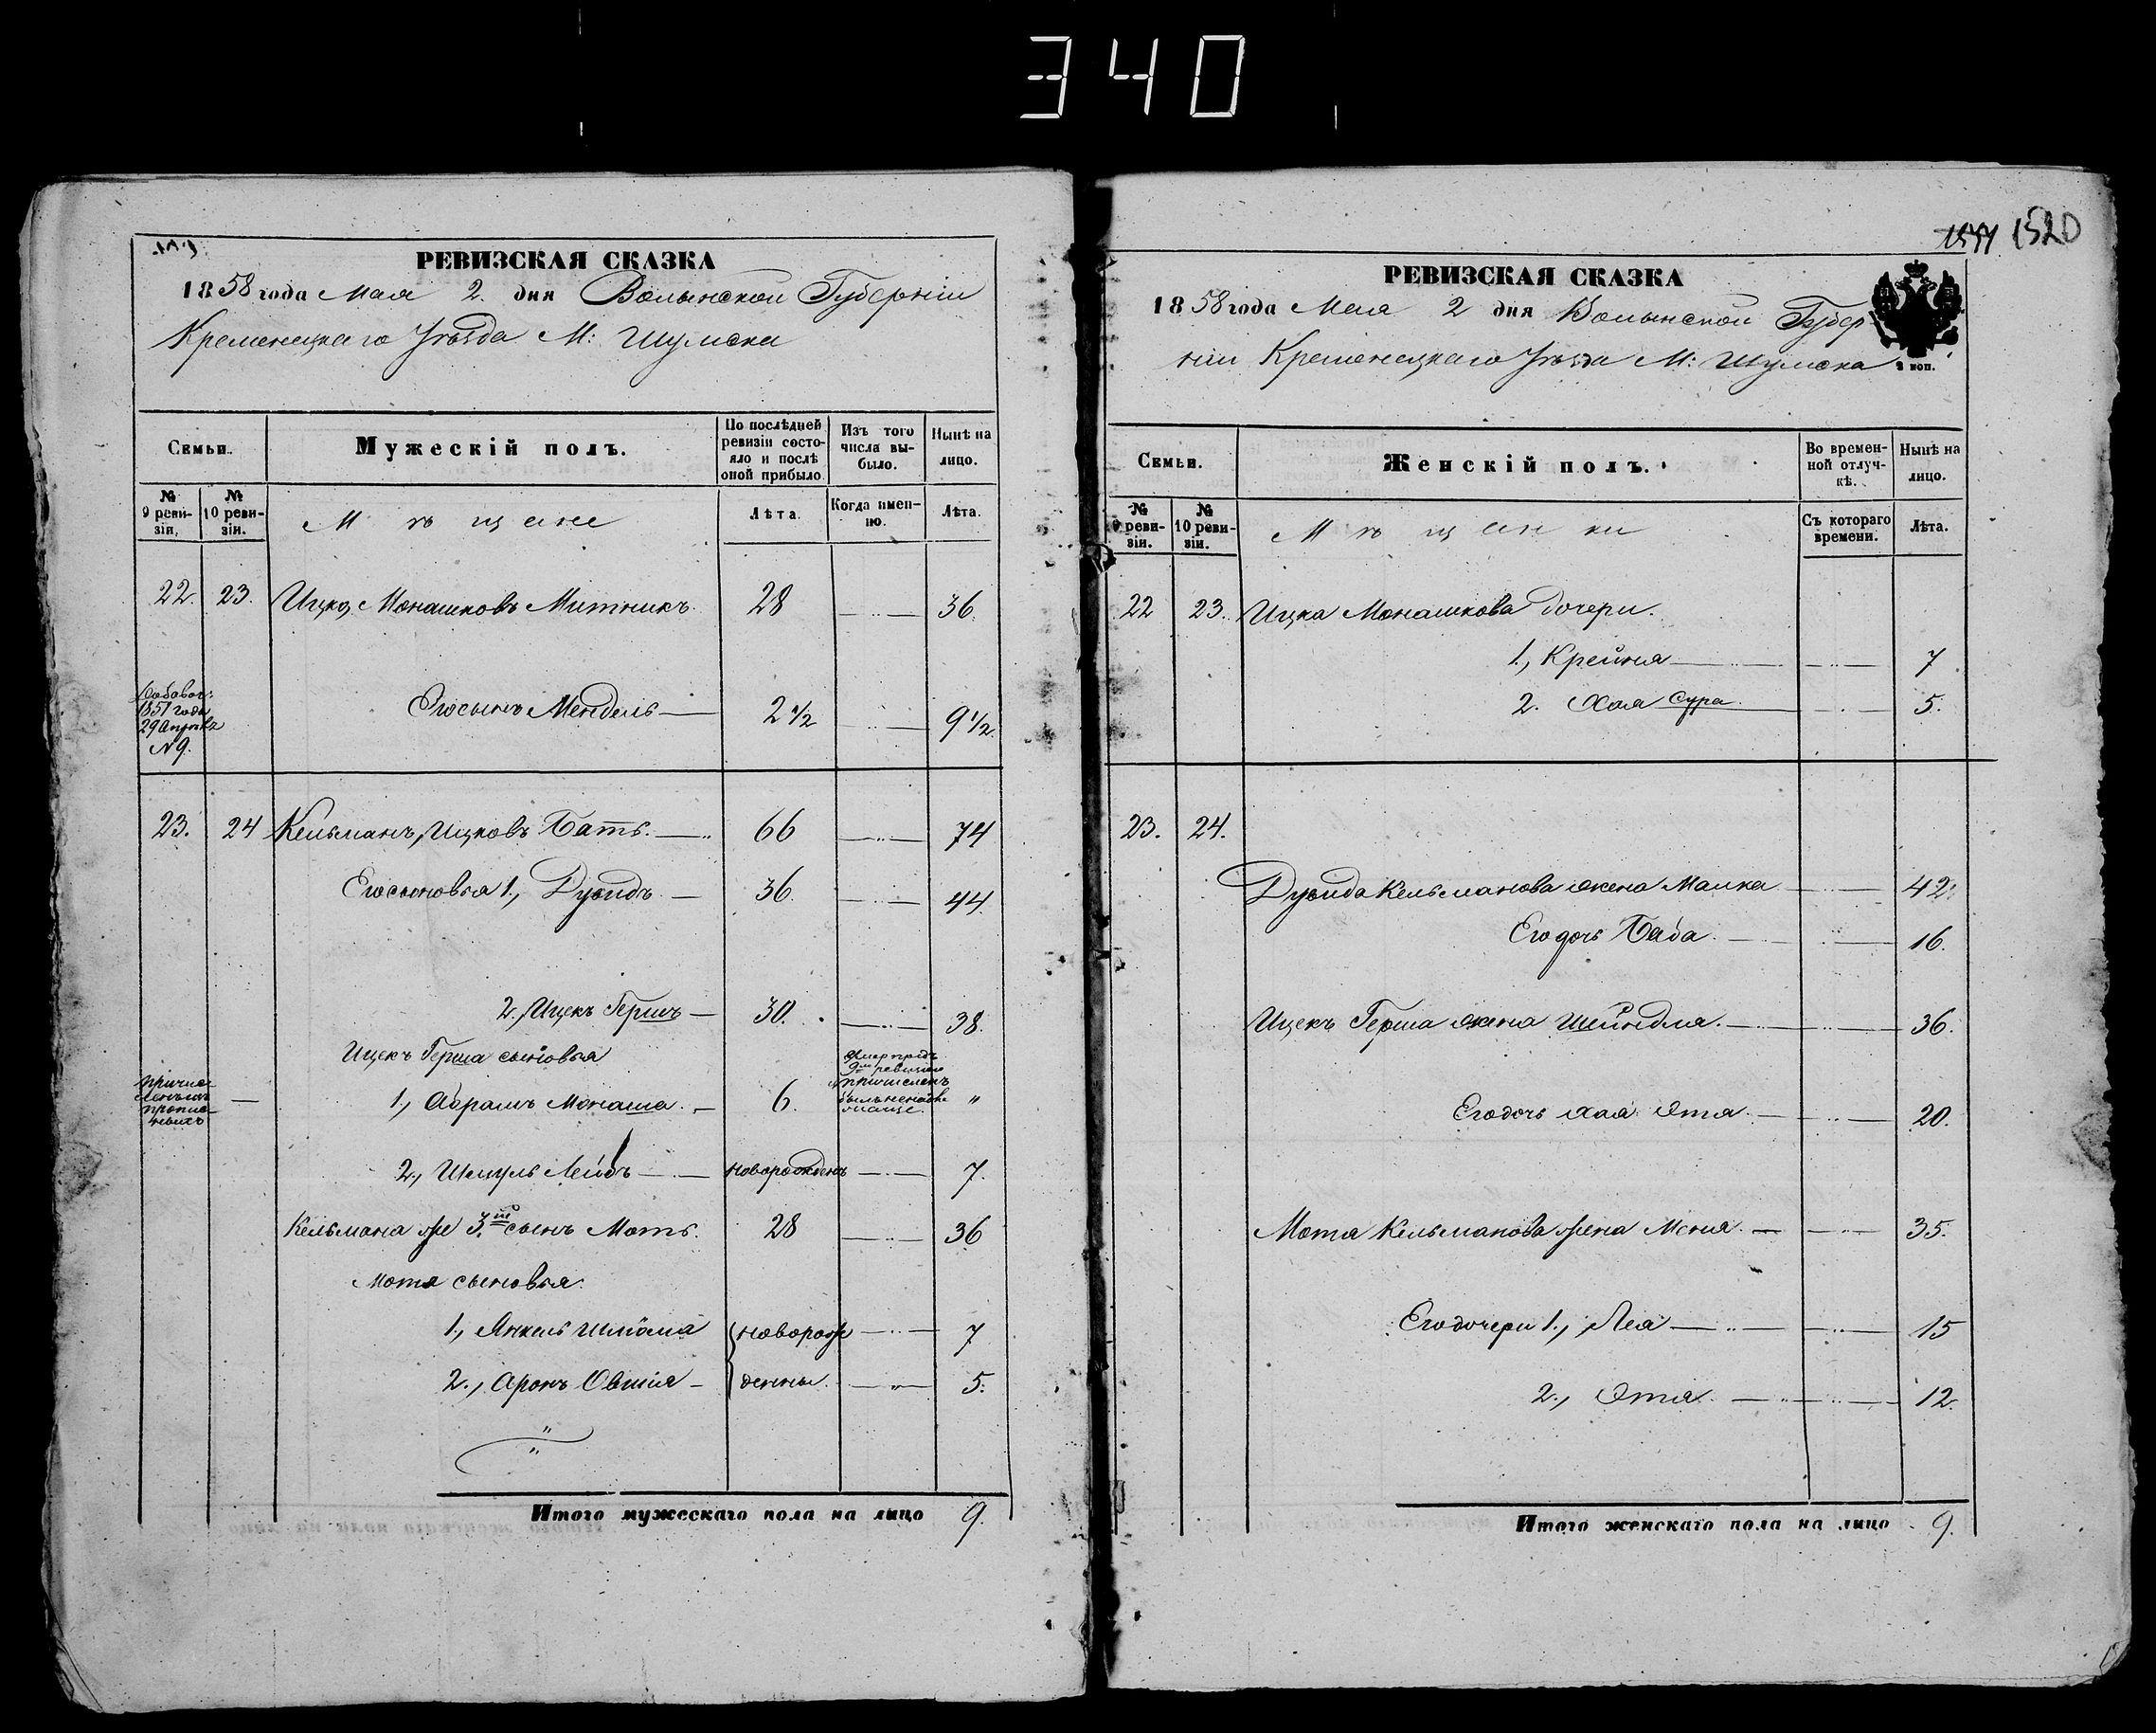 340
РЕВИЗСКАЯ СКАЗКА
1858 года Мая 2. дня Волынской Губерніи
Кременецкаго Уѣзда М: Шумска
Семьи.
Мужескій полъ.
По послѣдней ревизіи состояло и послѣ оной прибыло
Изъ того числа выбыло.
Нынѣ на лицо.
№ 9 ревизіи,
№ 10 ревизіи.
Мѣщане
Лѣта.
Когда именно.
Лѣта.
22. 23. Ицко Монашковъ Митникъ. 28 36.
Добавоч:
1851 года
29 Апрѣля
N 9.
Его сынъ Мендель 2 1/2 9 1/2.
23. 24 Кельманъ Ицковъ Батъ. 66 74
Его сыновья 1., Дувидъ. 36. 44.
2., Ицекъ Гершъ 30. 38.
Ицекъ Герша сыновья
1., Абрамъ Монаша. 6. "
2., Шмуль Лейбъ новорожденъ 7.
Кельмана же 3й сынъ Моть. 28 36
Мотя сыновья.
1., Янкель Шлёма новорож 7
2., Аронъ Овшія денны. 5.
Итого мужескаго пола на лицо 9.
1520
РЕВИЗСКАЯ СКАЗКА
1858 года Мая 2 дня Волынской Губер
ніи Кременецкаго Уѣзда М: Шумска
коп.
Семьи.
Женскій полъ.
Во временной отлучкѣ.
Нынѣ на лицо.
№ 9 ревизіи.
№ 10 ревизіи.
Мѣщанки
Съ котораго времени.
Лѣта.
22 23. Ицка Монашкова дочери.
1., Крейня 7
2. Хая Сура. 5.
23. 24.
Дувида Кельманова жена Малка 42.
Его дочь Баба. 16.
Ицекъ Герша жена Шейндля. 36.
Его дочь Хая Этя. 20.
Мотя Кельманова жена Меня. 35.
Его дочери 1., Лея 15
2., Этя. 12.
Итого женскаго пола на лицо 9.